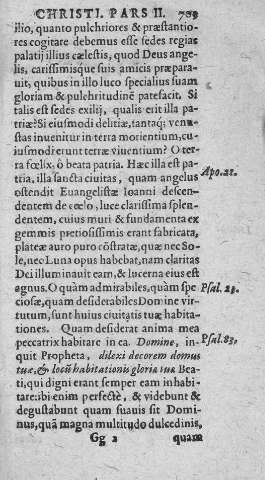 CHRISTI. PARS II. 789
ilio, quanto pulchriores & præstantio
res cogitare debemus esse sedes regias
palatij illius cælestis, quod Deus ange-
lis, carissimisque suis amicis præpara-
uit, quibus in illo loco specialius suam
gloriam & pulchritudinē patefacit. Si
talis est sedes exilij, qualis erit illa pa-
tria? Si eiusmodi delitiæ, tantaq; venu-
stas inuenitur in terra morientium, cu-
iusmodi erunt terræ viuentium? O ter-
ra fœlix, ô beata patria. Hæc illa est pa-
tria, illa sancta ciuitas, quam angelus
ostendit Euangelistæ Ioanni descen-
dentem de cœlo, luce clarissima splen-
dentem, cuius muri & fundamenta ex
gemmis pretiosissimis erant fabricata,
plateæ auro puro cōstratæ, quæ nec So-
le, nec Luna opus habebat, nam claritas
Dei illuminauit eam, & lucerna eius est
agnus. O quàm admirabiles, quàm spe
ciosæ, quam desiderabiles Domine vir-
tutum, sunt huius ciuitatis tuæ habita-
tiones. Quam desiderat anima mea
peccatrix habitare in ea. Domine, in-
quit Propheta, dilexi decorem domus
tuæ, & locū habitationis gloriæ tuæ Bea-
ti, qui digni erant semper eam inhabi-
tare: ibi enim perfectè, & videbunt &
degustabunt quam suauis sit Domi-
nus, quā magna multitudo dulcedinis,
Gg 2 quam
Apo. 21.
Psal. 23.
Psal. 83.